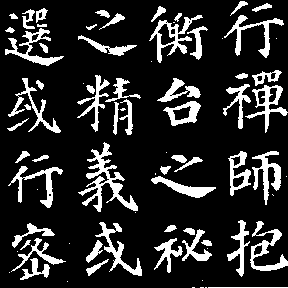 行禪師抱
衡台之祕
之精義或
選或行密